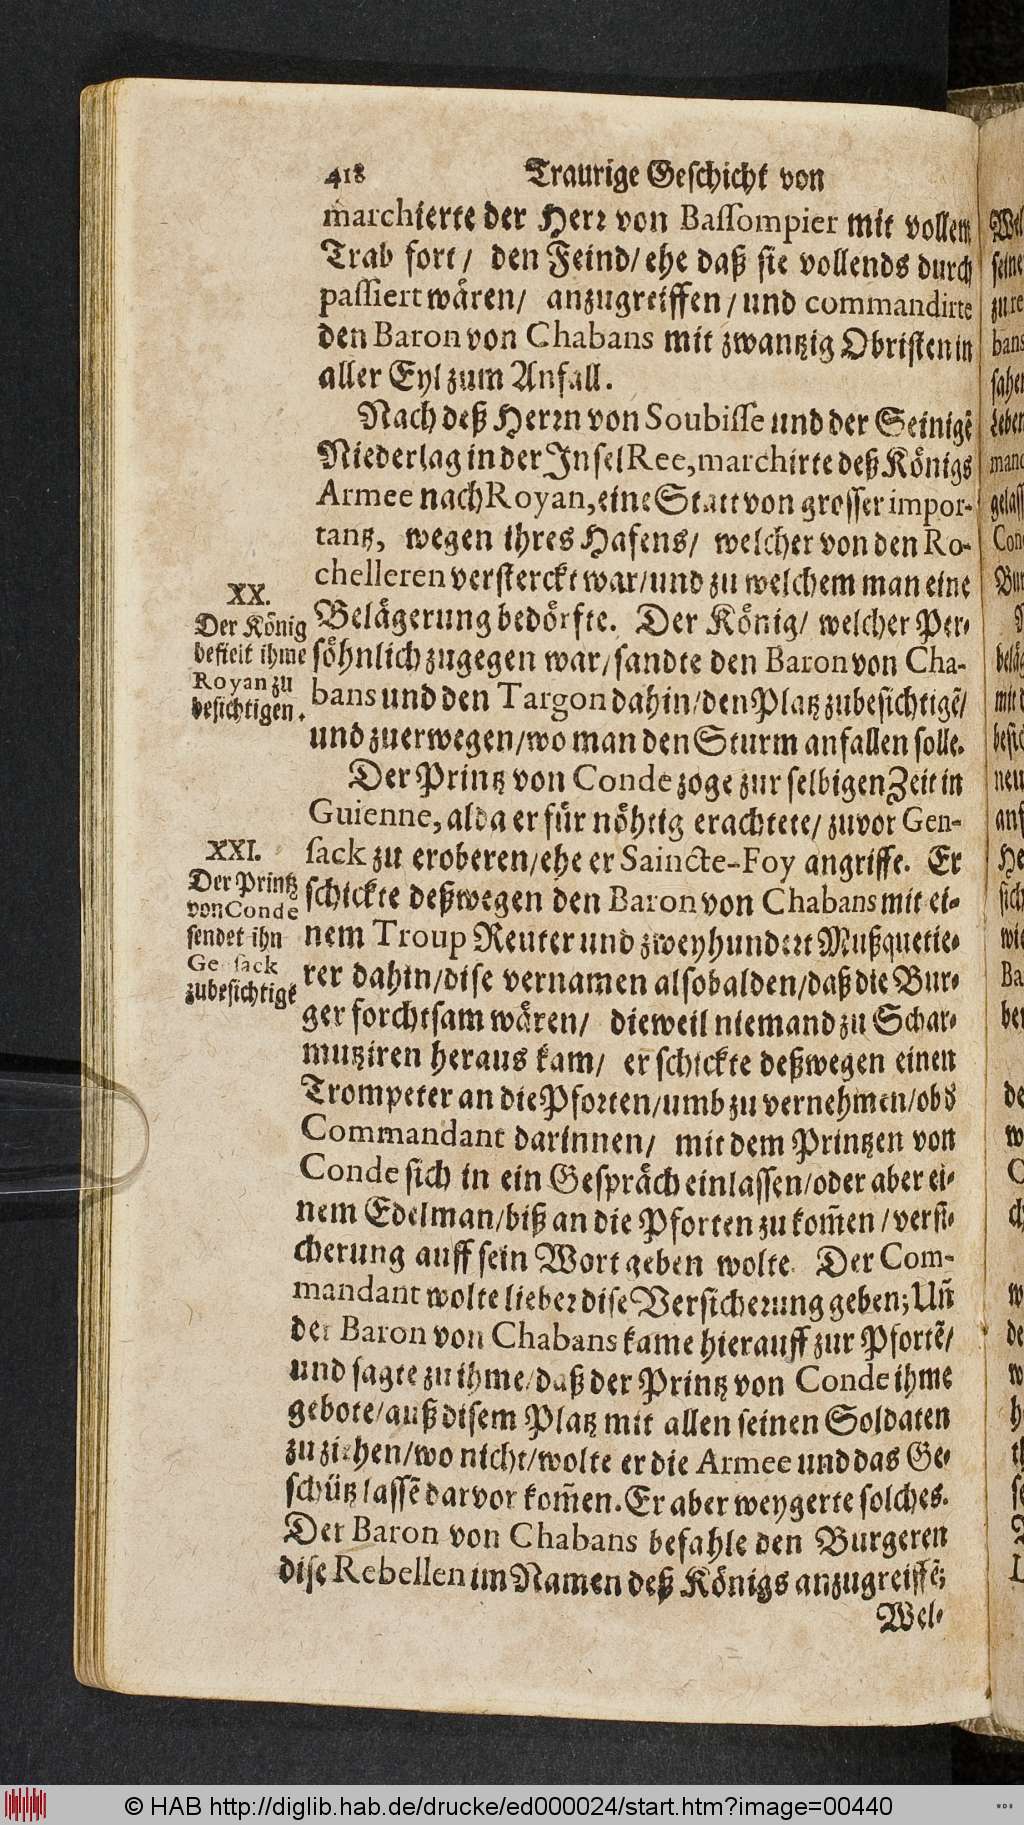 418 Traurige Geschicht von
marchierte der Herr von Bassompier mit vollem
Trab fort / den Feind / ehe daß sie vollends durch
passiert wären / anzugreiffen / und commandirte
den Baron von Chabans mit zwantzig Obristen in
aller Eyl zum Anfall.
Nach deß Herrn von Soubisse und der Seinigē
Niederlag in der Insel Ree, marchirte deß Königs
Armee nach Royan, eine Statt von grosser impor-
tantz, wegen ihres Hafens / welcher von den Ro-
chelleren versterckt war / und zu welchem man eine
Belägerung bedörfte. Der König / welcher Per-
söhnlich zugegen war / sandte den Baron von Cha-
bans und den Targon dahin / den Platz zubesichtigē /
und zuerwegen / wo man den Sturm anfallen solle.
Der Printz von Conde zoge zur selbigen Zeit in
Guienne, alda er für nöhtig erachtete / zuvor Gen-
sack zu eroberen / ehe er Saincte-Foy angriffe. Er
schickte deßwegen den Baron von Chabans mit ei-
nem Troup Reuter und zweyhundert Mußquetie-
rer dahin / dise vernamen alsobalden / daß die Bur-
ger forchtsam wären / dieweil niemand zu Schar-
mutziren heraus kam / er schickte deßwegen einen
Trompeter an die Pforten / umb zu vernehmen / ob d
Commandant darinnen / mit dem Printzen von
Conde sich in ein Gespräch einlassen / oder aber ei-
nem Edelman / biß an die Pforten zu kom̄en / versi-
cherung auff sein Wort geben wolte. Der Com-
mandant wolte lieber dise Versicherung geben; Un̄
der Baron von Chabans kame hierauff zur Pfortē /
und sagte zu ihme / daß der Printz von Conde ihme
gebote / auß disem Platz mit allen seinen Soldaten
zu ziehen / wo nicht / wolte er die Armee und das Ge-
schütz lassē darvor kom̄en. Er aber weygerte solches.
Der Baron von Chabans befahle den Burgeren
dise Rebellen im Namen deß Königs anzugreiffē;
Wel-
XX.
Der König
befielt ihme
Royan zu
besichtigen.
XXI.
Der Printz
von Conde
sendet ihn
Gensack
zubesichtigē
© HAB http://diglib.hab.de/drucke/ed000024/start.htm?image=00440